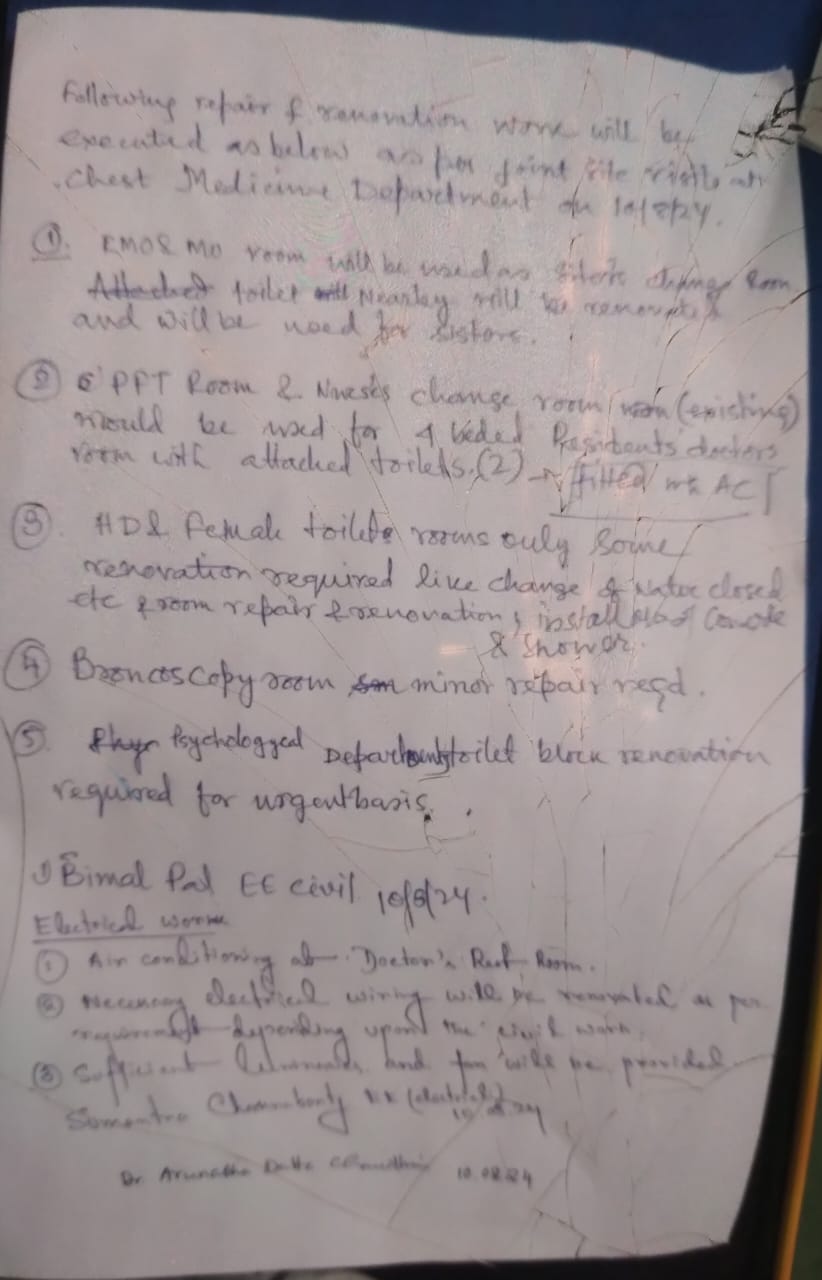 Following repair & renovation work will be
executed as below as per joint site visit at
Chest Medicine Department on 10/8/24.
①. RMO & MO room will be used as Sister's change Room
toilet Nearby will be renovated
and will be used for sisters.
② PPT Room & Nurses change room (existing)
would be used for 4 beded Residents' doctors
room with attached toilets.(2) → fitted with AC
③. HD & Female toilets rooms only some
renovation required like change of water closed
etc & room repair & renovation, install of Comode
& Shower.
④ Broncoscopy room minor repair reqd.
⑤. Psychologycal Department toilet block renovation
required for urgent basis.
Bimal Pal EE Civil 10/8/24.
Electrical works
① Air conditioning at Doctor's Rest Room.
② Necessary electrical wiring will be renovated as per
requirement depending upon the civil work.
③ Sufficient and fan will be provided
(electrical)
Dr. Arunabha Datta Chaudhuri 10.08.24